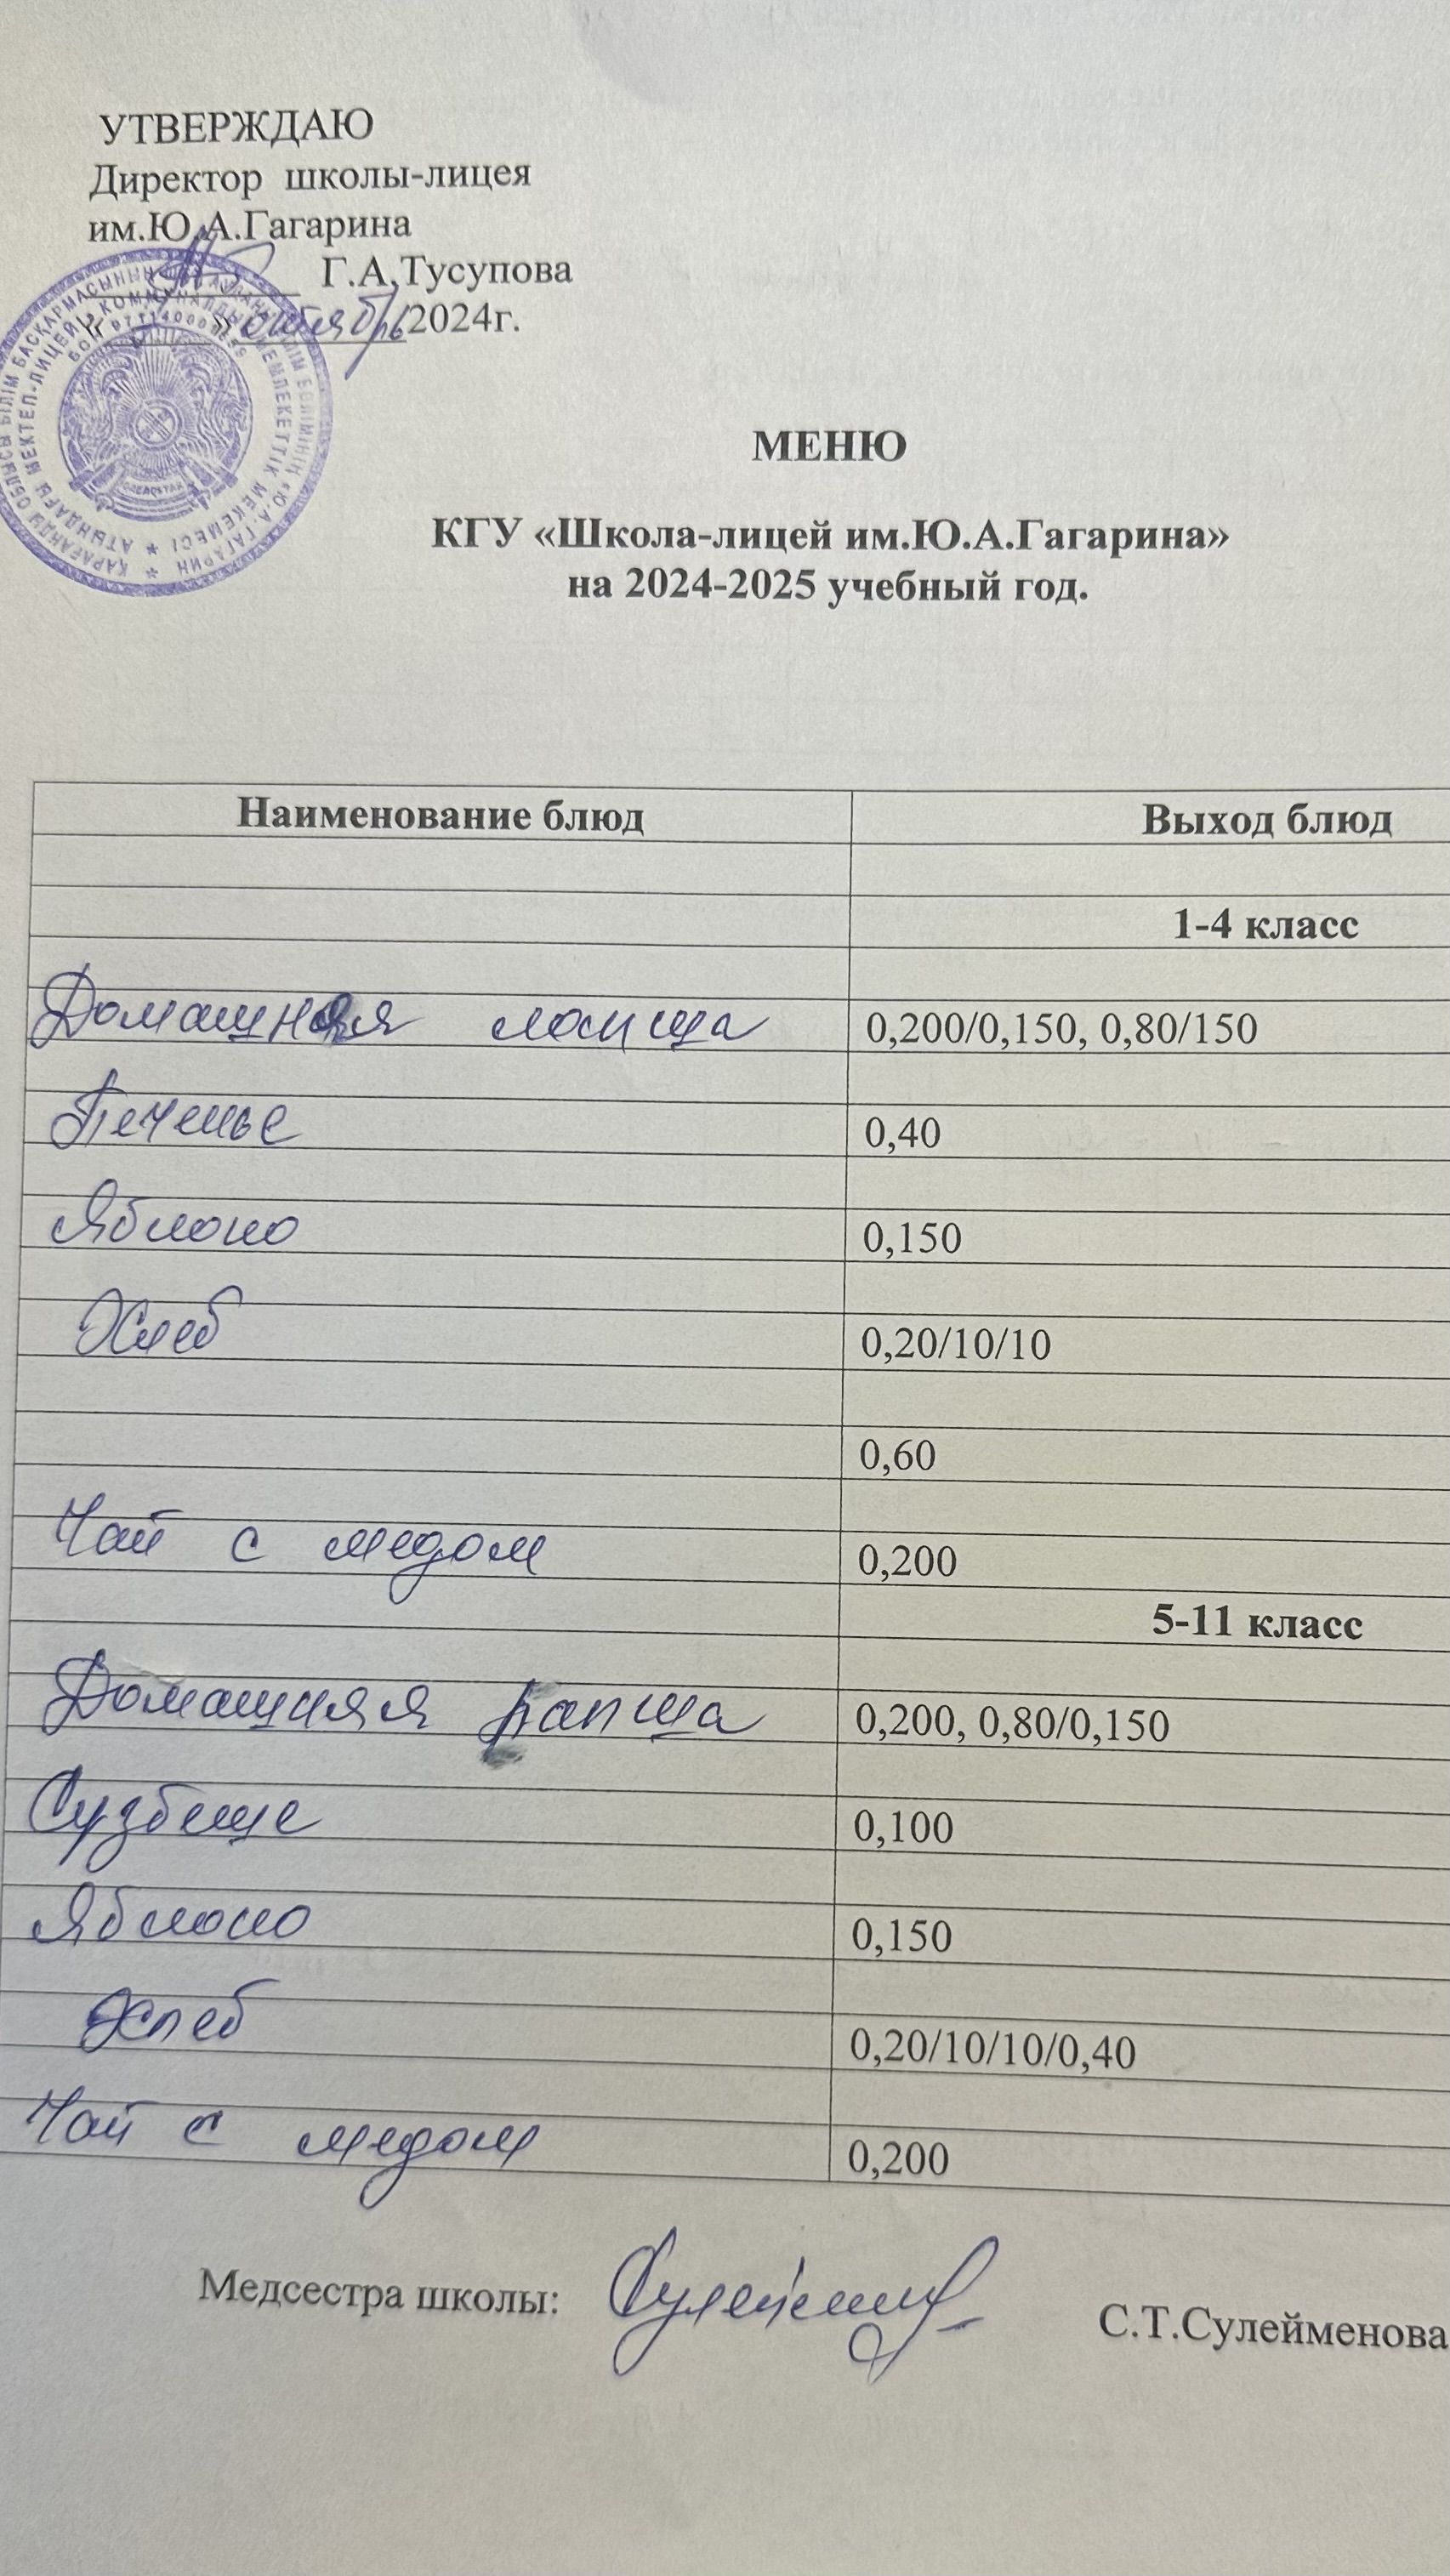 УТВЕРЖДАЮ
Директор школы-лицея
им.Ю.А.Гагарина
Г.А.Тусупова
« » октябрь 2024г.
МЕНЮ
КГУ «Школа-лицей им.Ю.А.Гагарина»
на 2024-2025 учебный год.
Наименование блюд Выход блюд
1-4 класс
Домашняя лапша 0,200/0,150, 0,80/150
Печенье 0,40
Яблоко 0,150
Хлеб 0,20/10/10
0,60
Чай с медом 0,200
5-11 класс
Домашняя лапша 0,200, 0,80/0,150
Сузбеше 0,100
Яблоко 0,150
Хлеб 0,20/10/10/0,40
Чай с медом 0,200
Медсестра школы: С.Т.Сулейменова